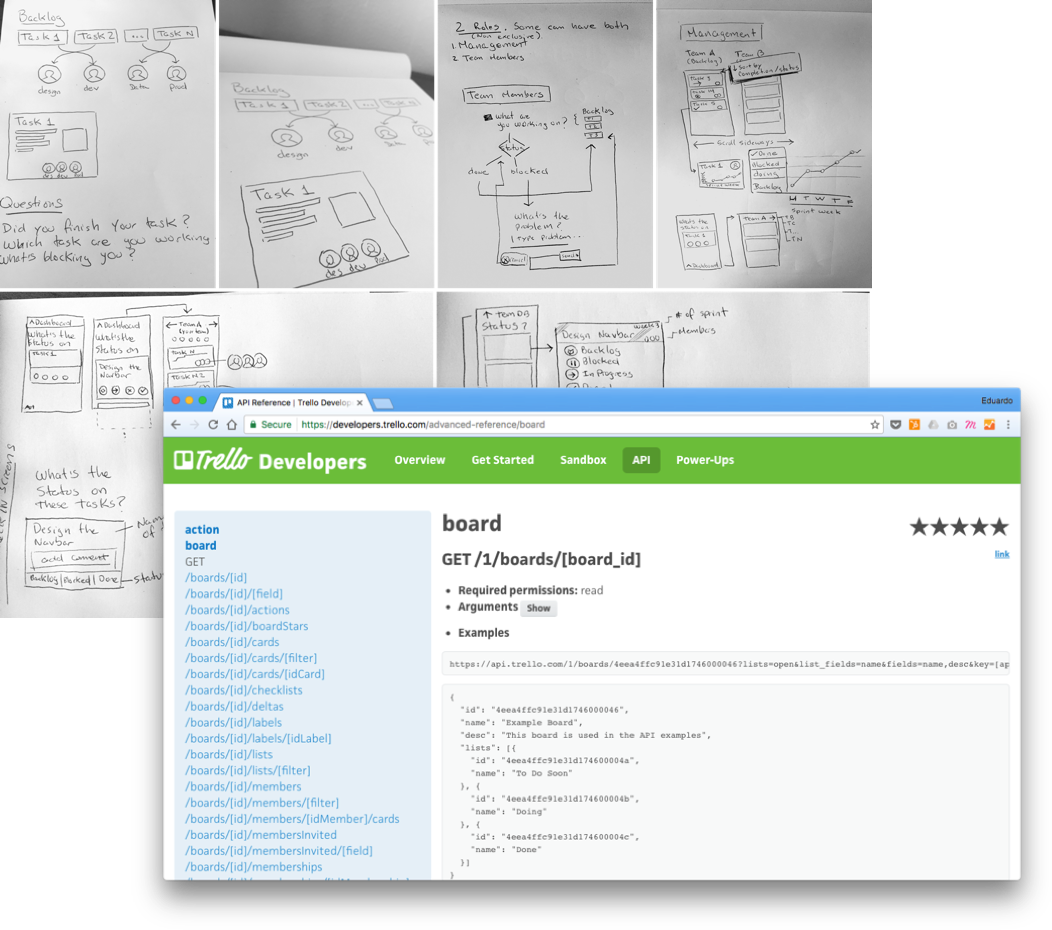 Backlog
Task 1
Task 2
...
Task N
design
dev
Data
Prod
Task 1
des dev Prod
Questions
Did you finish your task?
Which task are you working
what's blocking you?
Backlog
Task 1
Task 2
...
design
dev
Data
Task 1
des dev Prod
2 Roles, Some can have both
(Non exclusive).
1. Management
2 Team Members
Team Members
what are
you working on?
Backlog
Status
done
blocked
what's the
problem?
1 Type problem...
Management
Team A
(Backlog)
Team B
Sort by
Completion/status
Scroll sideways
Task 1
✓ Done
Blocked
doing
Backlog
M T W T F
Sprint week
What's the
status on
Task 1
Dashboard
Team A
Dashboard
What's the
Status on
Task 1
Dashboard
What's the
Status on
Design the
Navbar
Team A
Task N
What's the
Status on
these tasks?
Design the
Navbar
add comment
Backlog | Blocked | Done
Status?
Design Navbar
Backlog
Blocked
In Progress
# of sprint
Members
API Reference | Trello Develop
Eduardo
Secure
https://developers.trello.com/advanced-reference/board
Trello Developers
Overview
Get Started
Sandbox
API
Power-Ups
action
board
GET
/boards/[id]
/boards/[id]/[field]
/boards/[id]/actions
/boards/[id]/boardStars
/boards/[id]/cards
/boards/[id]/cards/[filter]
/boards/[id]/cards/[idCard]
/boards/[id]/checklists
/boards/[id]/deltas
/boards/[id]/labels
/boards/[id]/labels/[idLabel]
/boards/[id]/lists
/boards/[id]/lists/[filter]
/boards/[id]/members
/boards/[id]/members/[filter]
/boards/[id]/members/[idMember]/cards
/boards/[id]/membersInvited
/boards/[id]/membersInvited/[field]
/boards/[id]/memberships
board
GET /1/boards/[board_id]
link
Required permissions: read
Arguments Show
Examples
https://api.trello.com/1/boards/4eea4ffc91e31d1746000046?lists=open&list_fields=name&fields=name,desc&key=[ap
{
"id": "4eea4ffc91e31d1746000046",
"name": "Example Board",
"desc": "This board is used in the API examples",
"lists": [{
"id": "4eea4ffc91e31d174600004a",
"name": "To Do Soon"
}, {
"id": "4eea4ffc91e31d174600004b",
"name": "Doing"
}, {
"id": "4eea4ffc91e31d174600004c",
"name": "Done"
}]
}